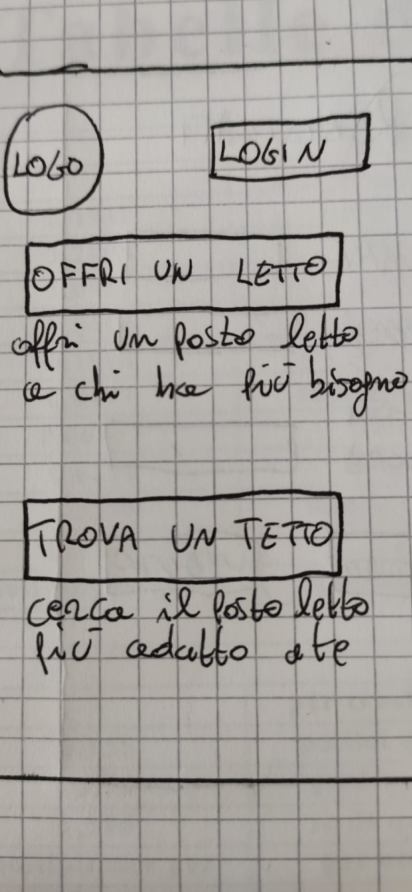 LOGO
LOGIN
OFFRI UN LETTO
offri un posto letto
a chi ha più bisogno
TROVA UN TETTO
cerca il posto letto
più adatto a te